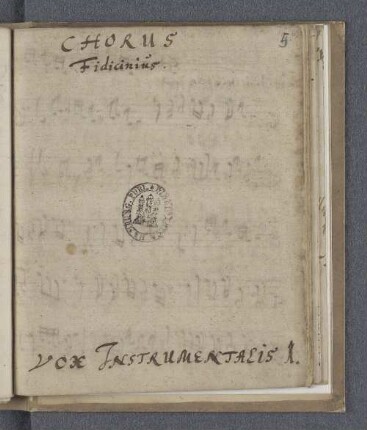 CHORUS
Fidicinius.
5
VOX INSTRUMENTALIS 1.